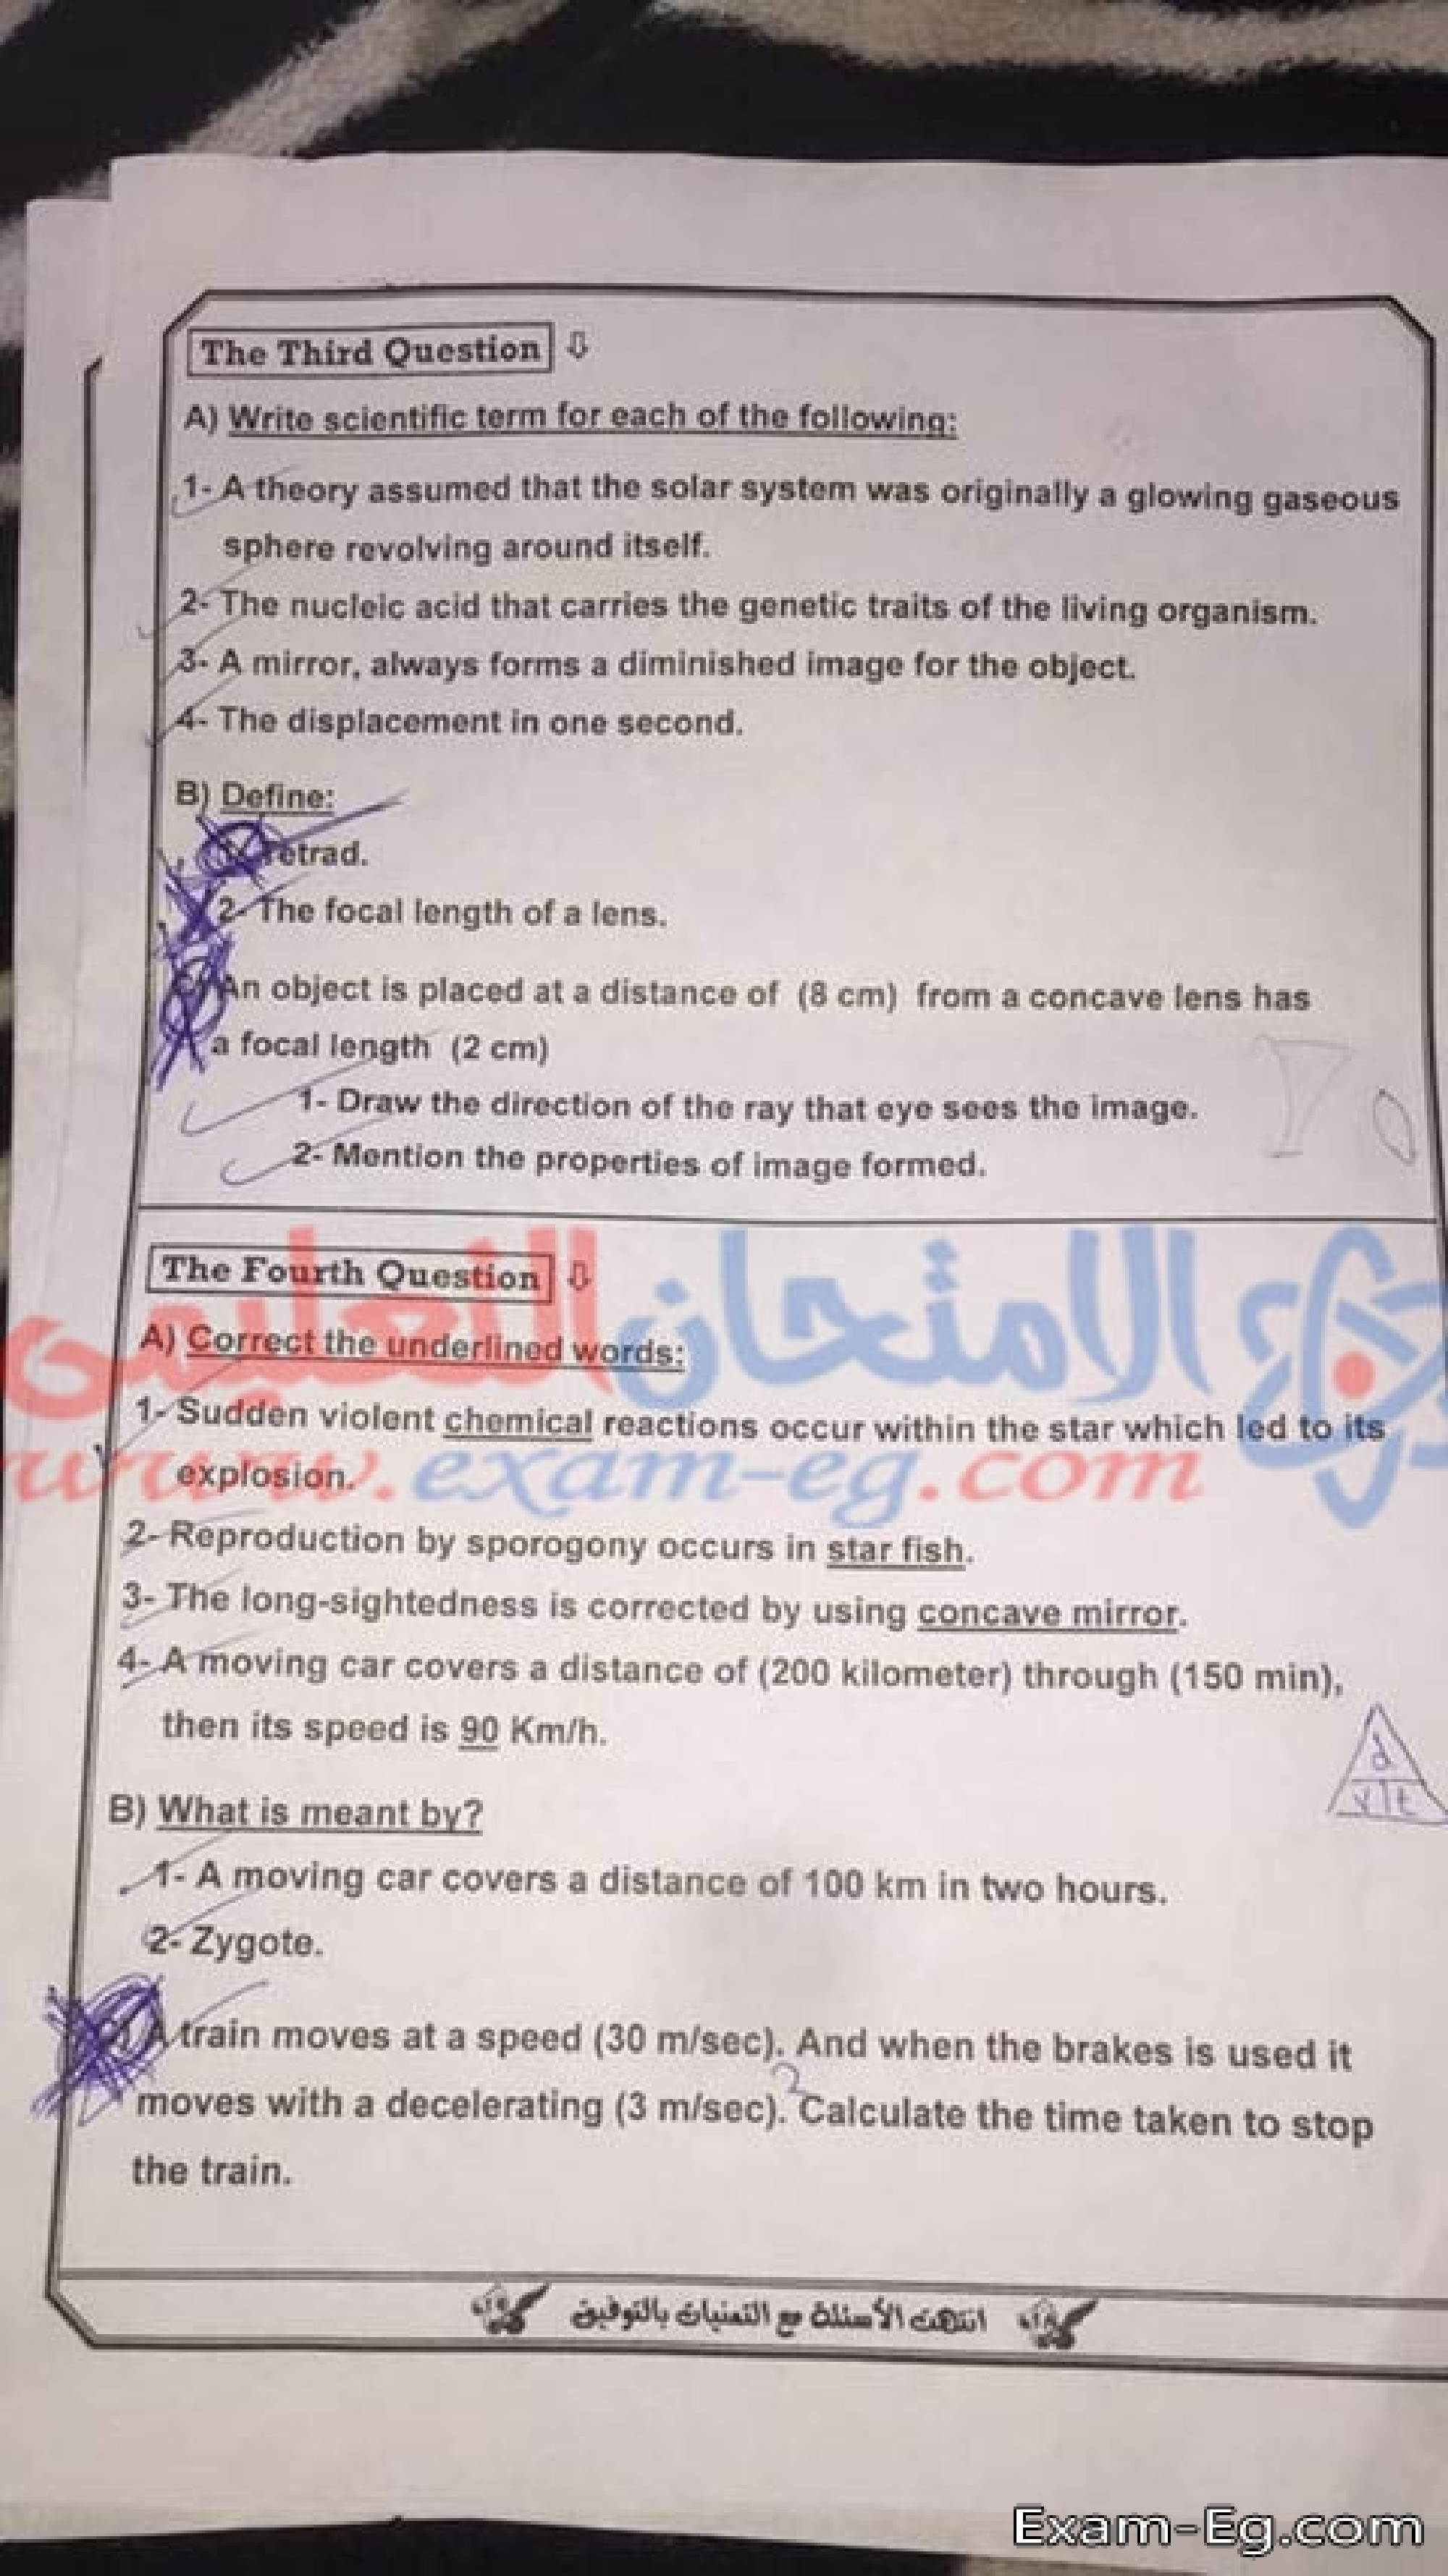 The Third Question ⇩
A) Write scientific term for each of the following:
1- A theory assumed that the solar system was originally a glowing gaseous
sphere revolving around itself.
2- The nucleic acid that carries the genetic traits of the living organism.
3- A mirror, always forms a diminished image for the object.
4- The displacement in one second.
B) Define:
Tetrad.
2- The focal length of a lens.
An object is placed at a distance of (8 cm) from a concave lens has
a focal length (2 cm)
1- Draw the direction of the ray that eye sees the image.
2- Mention the properties of image formed.
The Fourth Question ⇩
الامتحان التعليمى
A) Correct the underlined words:
1- Sudden violent chemical reactions occur within the star which led to its
explosion.
www.exam-eg.com
2- Reproduction by sporogony occurs in star fish.
3- The long-sightedness is corrected by using concave mirror.
4- A moving car covers a distance of (200 kilometer) through (150 min),
then its speed is 90 Km/h.
d
v t
B) What is meant by?
1- A moving car covers a distance of 100 km in two hours.
2- Zygote.
A train moves at a speed (30 m/sec). And when the brakes is used it
moves with a decelerating (3 m/sec).2 Calculate the time taken to stop
the train.
انتهت الأسئلة مع التمنيات بالتوفيق
Exam-Eg.com